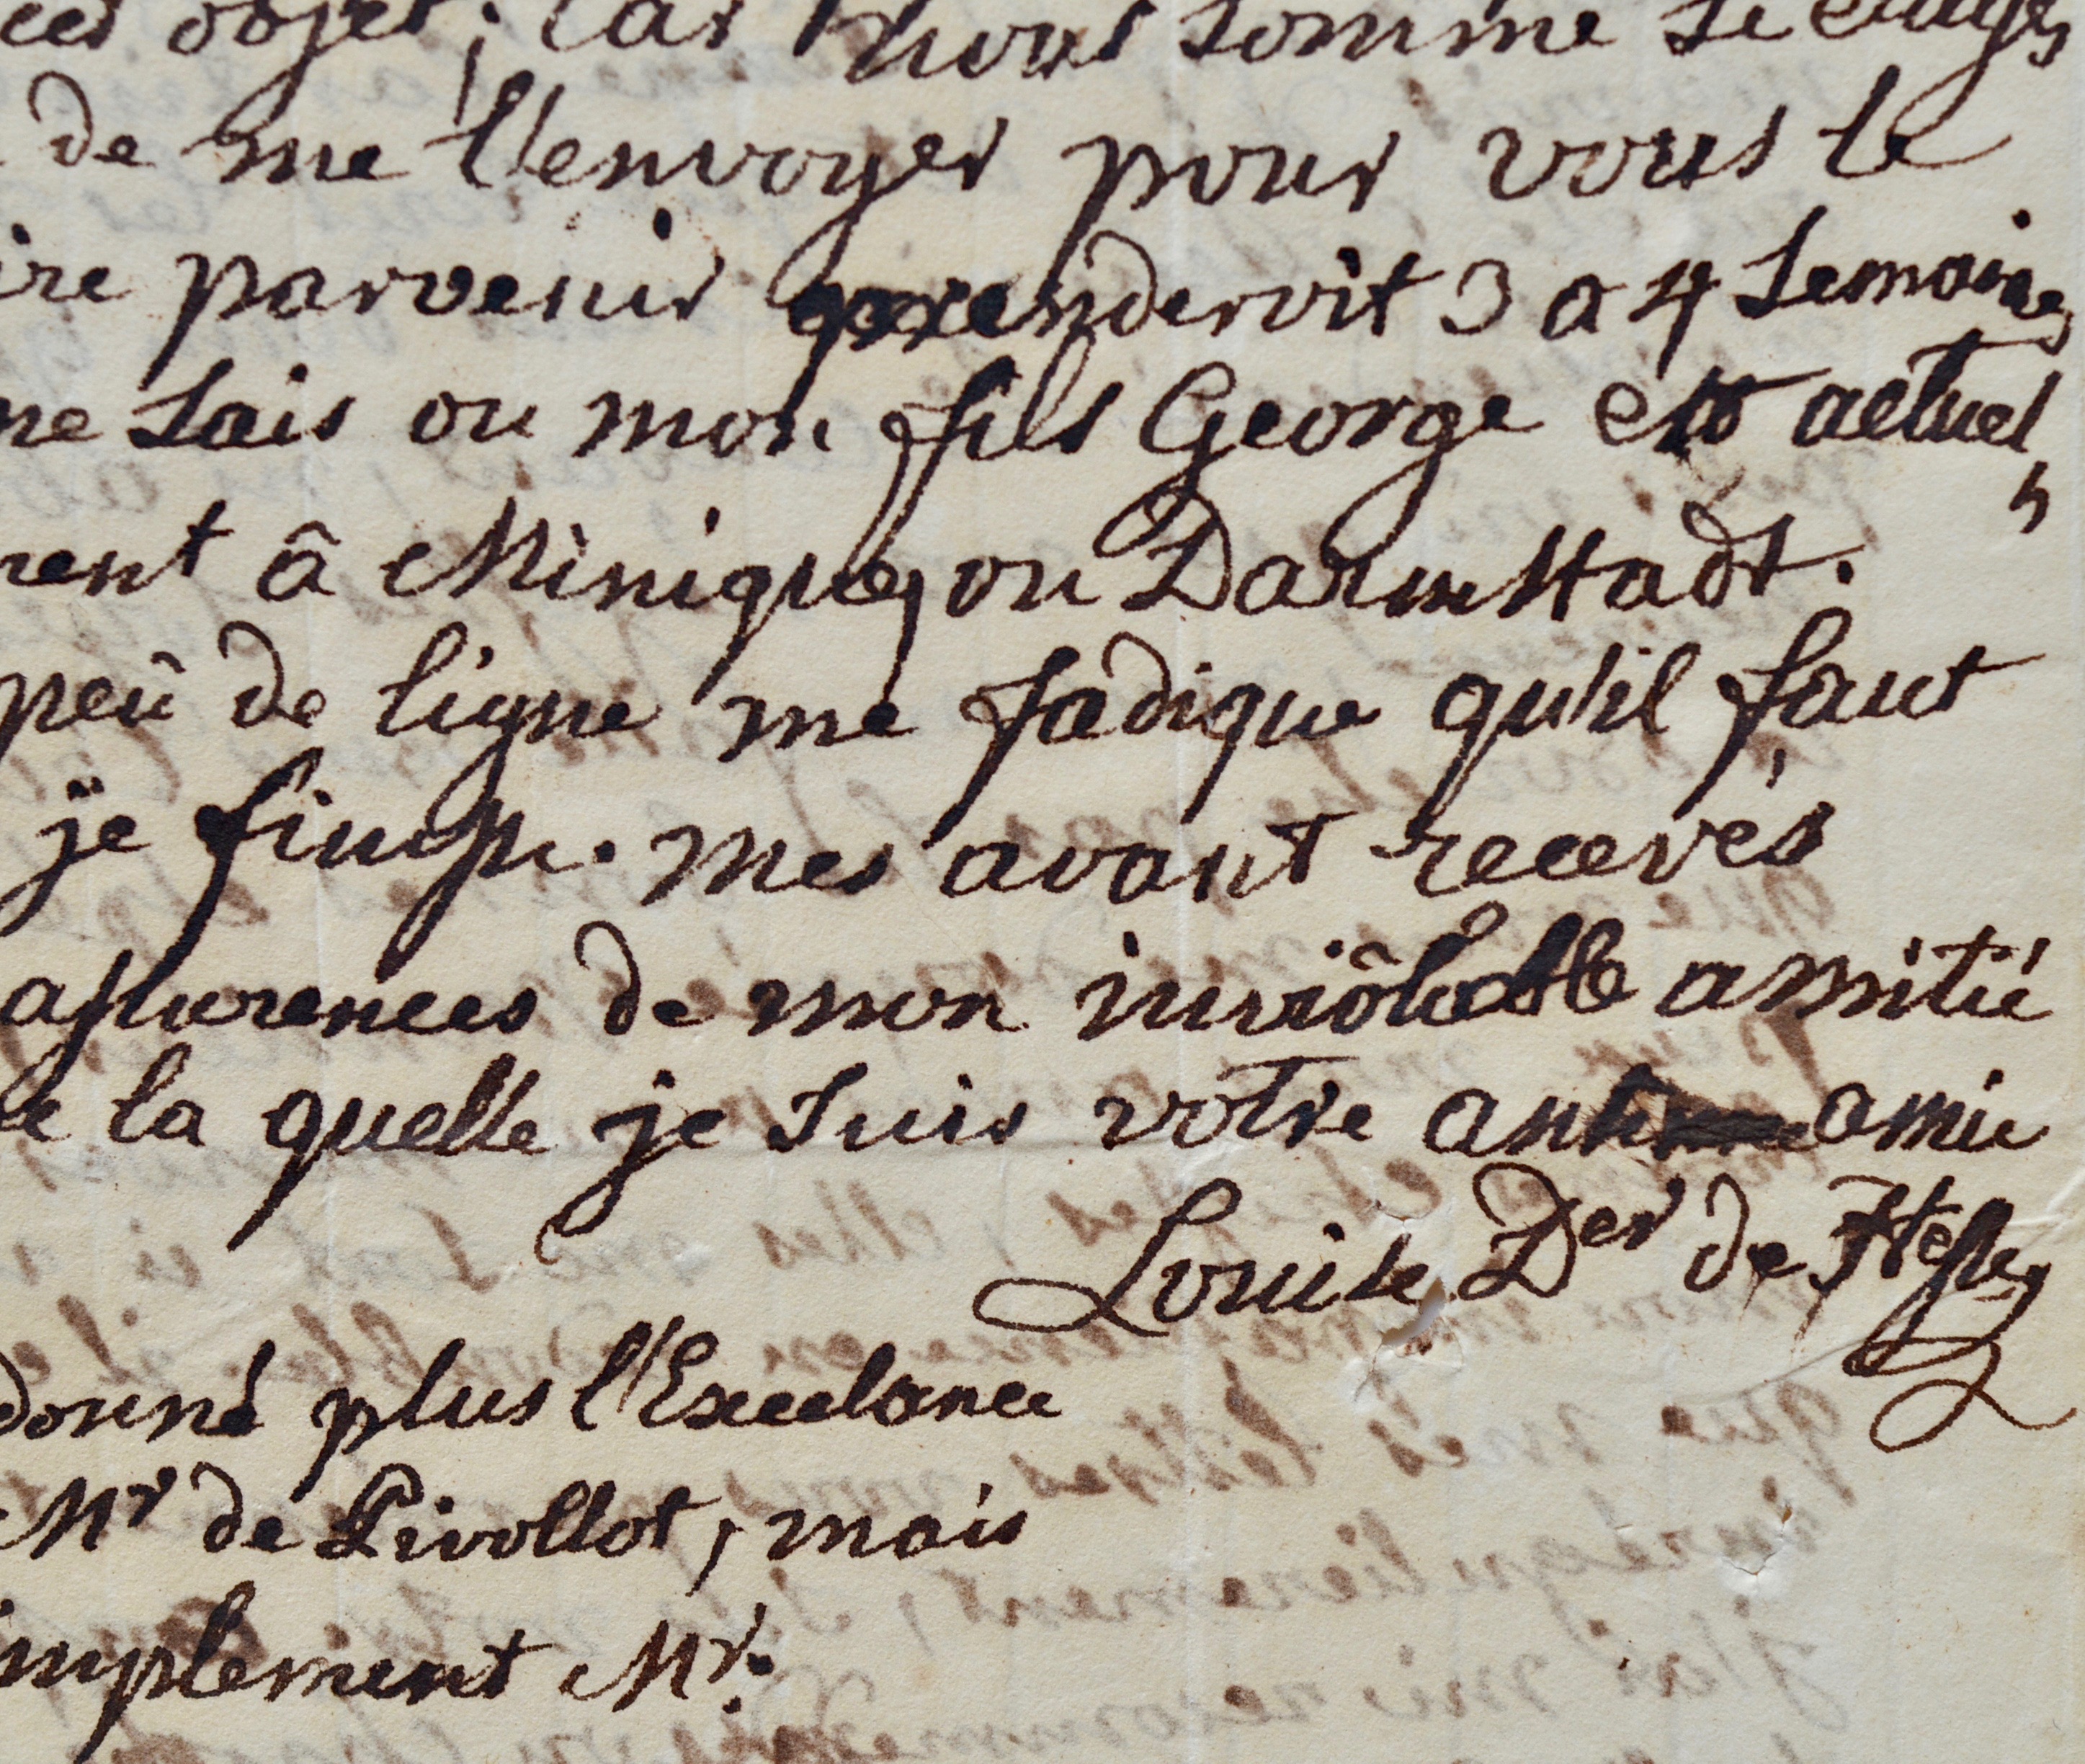 cet objet; car nous somme si eloigs
de me l'envoyer pour vous le
ire parvenir prenderoit 3 a 4 Semaines
ne Sais ou mon fils George est actuel,,
ment â Minique, ou Darmstadt.
peû de ligne me fadique qu'il faut
je finisse. mes avant recevés
assurences de mon inviôlable amitié
de la quelle je Suis votre amie
Louise Der de Hesse
donné plus l'Excelance
Mr de Livollot, mais
implement Mr.